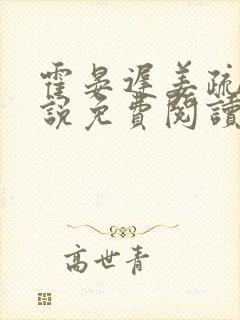 霍晏遲姜疏
說免費閱讀
高世青